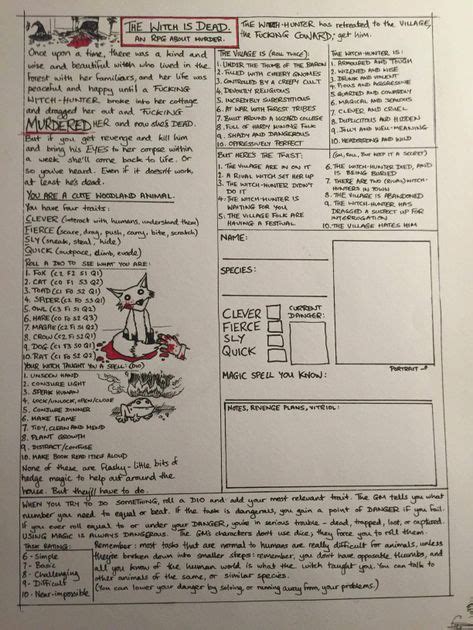 THE WITCH IS DEAD.
AN RPG ABOUT MURDER.
Once upon a time, there was a kind and
wise and beautiful witch who lived in the
forest with her familiars, and her life was
peaceful and happy until a FUCKING
WITCH-HUNTER broke into her cottage
and dragged her out and FUCKING
MURDERED HER and now she's DEAD.
But if you get revenge and kill him
and bring his EYES to her corpse within
a week she'll come back to life. Or
so you've heard. Even if it doesn't work,
at least he's dead.
YOU ARE A CUTE WOODLAND ANIMAL.
You have four traits:
CLEVER (interact with humans, understand them)
FIERCE (scare, drag, push, carry, bite, scratch)
SLY (sneak, steal, hide)
QUICK (outpace, climb, evade)
ROLL A DIO TO SEE WHAT YOU ARE:
1. FOX (C2 F2 S1 Q1)
2. CAT (C0 F1 S3 Q2)
3. TOAD (C1 F0 S2 Q1)
4. SPIDER (C2 F0 S3 Q1)
5. OWL (C3 F1 S1 Q2)
6. HARE (C0 F0 S2 Q3)
7. MAGPIE (C2 F1 S1 Q2)
8. CROW (C2 F1 S1 Q2)
9. DOG (C1 F3 S0 Q2)
10. RAT (C1 F0 S2 Q1)
YOUR WITCH TAUGHT YOU A SPELL: (DIO)
1. UNSEEN HAND
2. CONJURE LIGHT
3. SPEAK HUMAN
4. LOCK/UNLOCK, OPEN/CLOSE
5. CONJURE DINNER
6. MAKE FLAME
7. TIDY, CLEAN AND MEND
8. PLANT GROWTH
9. DISTRACT/CONFUSE
10. MAKE BOOK READ ITSELF ALOUD
None of these are flashy - little bits of
hedge magic to help out around the
house. But they'll have to do.
THE WITCH-HUNTER has retreated to the VILLAGE,
the FUCKING COWARD; get him.
THE VILLAGE IS (ROLL TWICE):
1. UNDER THE THUMB OF THE BARON
2. FILLED WITH CHEERY GNOMES
3. CONTROLLED BY A CREEPY CULT
4. DEVOUTLY RELIGIOUS
5. INCREDIBLY SUPERSTITIOUS
6. AT WAR WITH FOREST TRIBES
7. BUILT AROUND A WIZARD COLLEGE
8. FULL OF HARDY MINING FOLK
9. SHADY AND DISHONEST
10. OPPRESSIVELY PERFECT
THE WITCH-HUNTER IS:
1. ARMOURED AND TOUGH
2. WIZENED AND WISE
3. DRUNK AND VIOLENT
4. PIOUS AND AGGRESSIVE
5. GUARDED AND COWARDLY
6. MAGICAL AND SERIOUS
7. CLEVER AND CRUEL
8. DUPLICITOUS AND HIDDEN
9. JOLLY AND WELL-MEANING
10. HEADSTRONG AND WILD
BUT HERE'S THE TWIST: (GM, ROLL, BUT KEEP IT A SECRET)
1. THE VILLAGE ARE IN ON IT
2. A RIVAL WITCH SET HER UP
3. THE WITCH-HUNTER DIDN'T
DO IT
4. THE WITCH-HUNTER IS
WAITING FOR YOU
5. THE VILLAGE FOLK ARE
HAVING A FESTIVAL
6. THE WITCH-HUNTER DIED, AND
IS BEING BURIED
7. THERE ARE TWO (RIVAL) WITCH-
HUNTERS IN TOWN
8. THE VILLAGE IS ABANDONED
9. THE WITCH-HUNTER HAS
DRAGGED A SUSPECT UP FOR
INTERROGATION
10. THE VILLAGE HATES HIM
NAME:
SPECIES:
CLEVER
FIERCE
SLY
QUICK
CURRENT
DANGER:
PORTRAIT
MAGIC SPELL YOU KNOW:
NOTES, REVENGE PLANS, VITRIOL:
WHEN YOU TRY TO DO SOMETHING, roll a DIO and add your most relevant trait. The GM tells you what
number you need to equal or beat. If the task is dangerous, you gain a point of DANGER if you fail.
If you ever roll equal to or under your DANGER, you're in serious trouble - dead, trapped, lost, or captured.
USING MAGIC IS ALWAYS DANGEROUS. The GM's characters don't use dice; they force you to roll them.
TASK RATING:
6 - Simple
7 - Basic
8 - Challenging
9 - Difficult
10 - Near-impossible
Remember: most tasks that are normal to humans are really difficult for animals, unless
they're broken down into smaller steps: remember, you don't have opposable thumbs, and
all you know of the human world is what the witch taught you. You can talk to
other animals of the same, or similar species.
(You can lower your danger by solving, or running away from, your problems.)